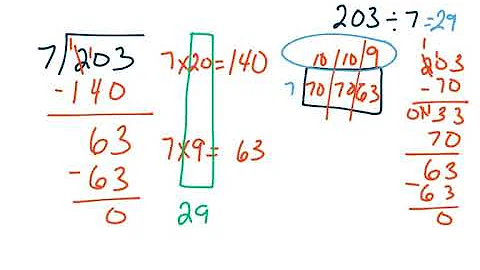 203 ÷ 7 = 29
7 203
7 × 20 = 140
- 140
63
7 × 9 = 63
- 63
0
29
10 10 9
7 70 70 63
203
- 70
133
70
63
- 63
0